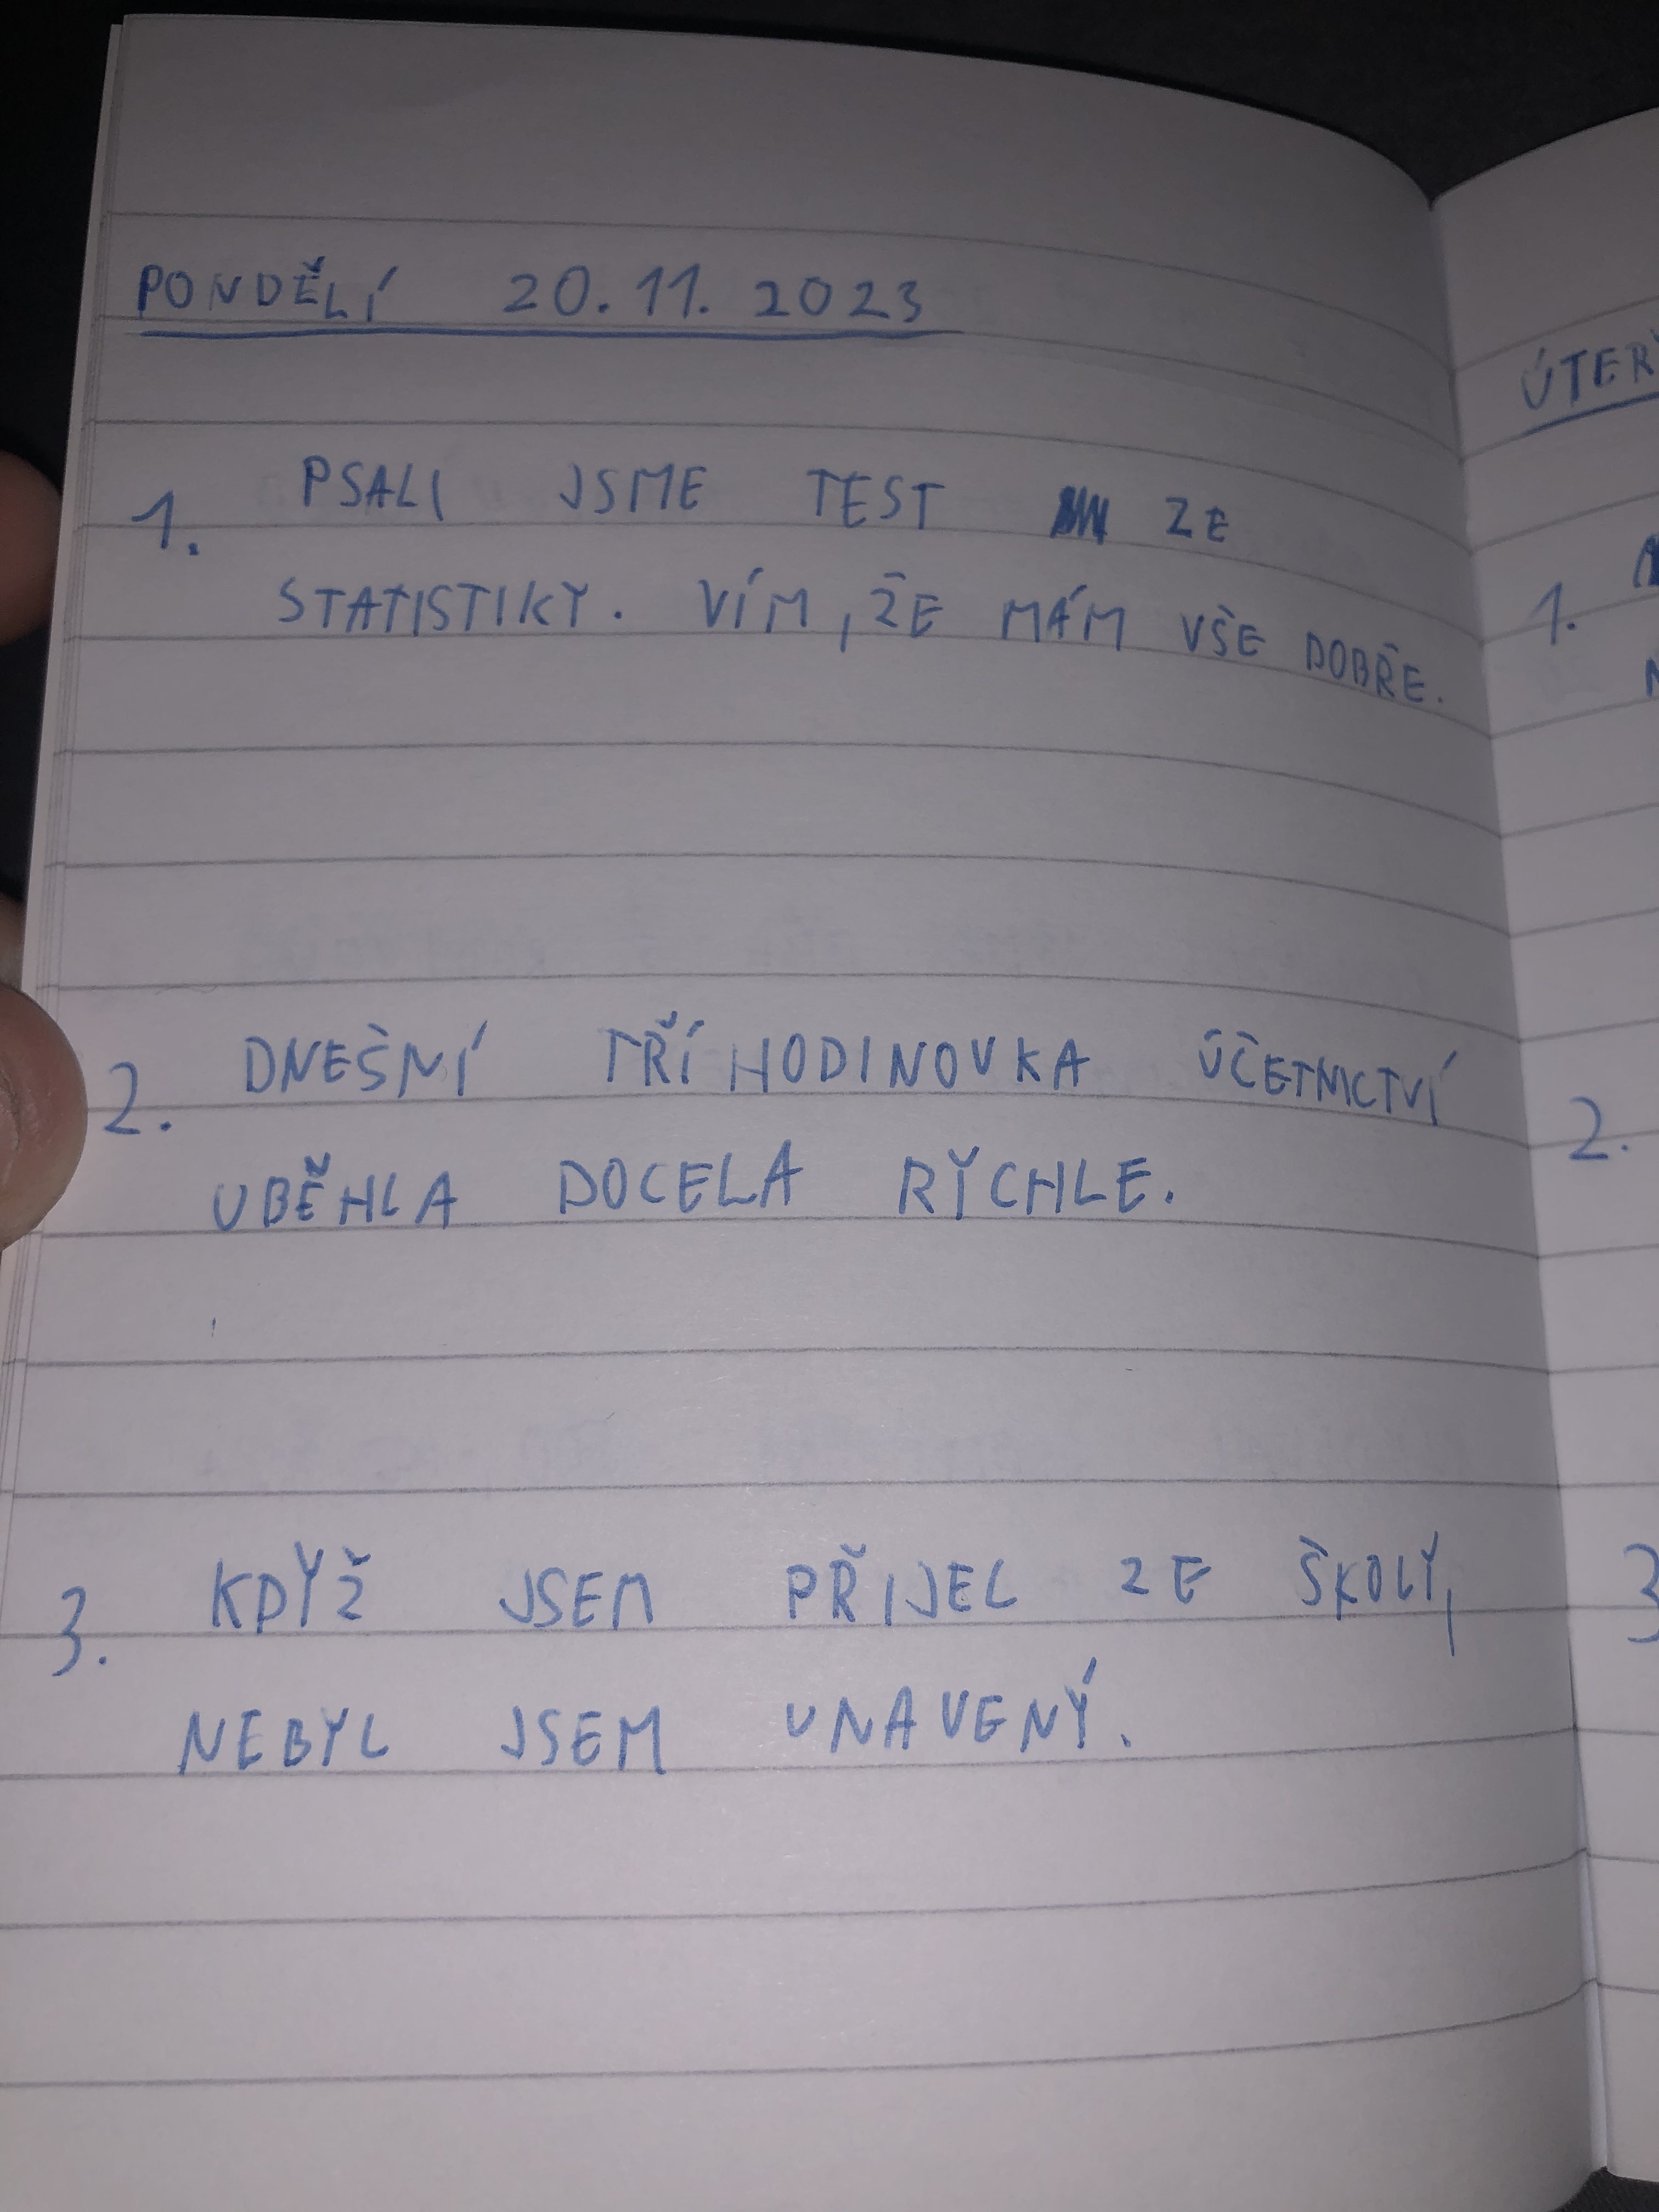 PONDĚLÍ 20.11.2023
1. PSALI JSME TEST ZE
STATISTIKY. VÍM, ŽE MÁM VŠE DOBŘE.
2. DNEŠNÍ TŘÍHODINOVKA ÚČETNICTVÍ
UBĚHLA DOCELA RYCHLE.
3. KDYŽ JSEM PŘIJEL ZE ŠKOLY,
NEBYL JSEM UNAVENÝ.
ÚTER
1.
2.
3